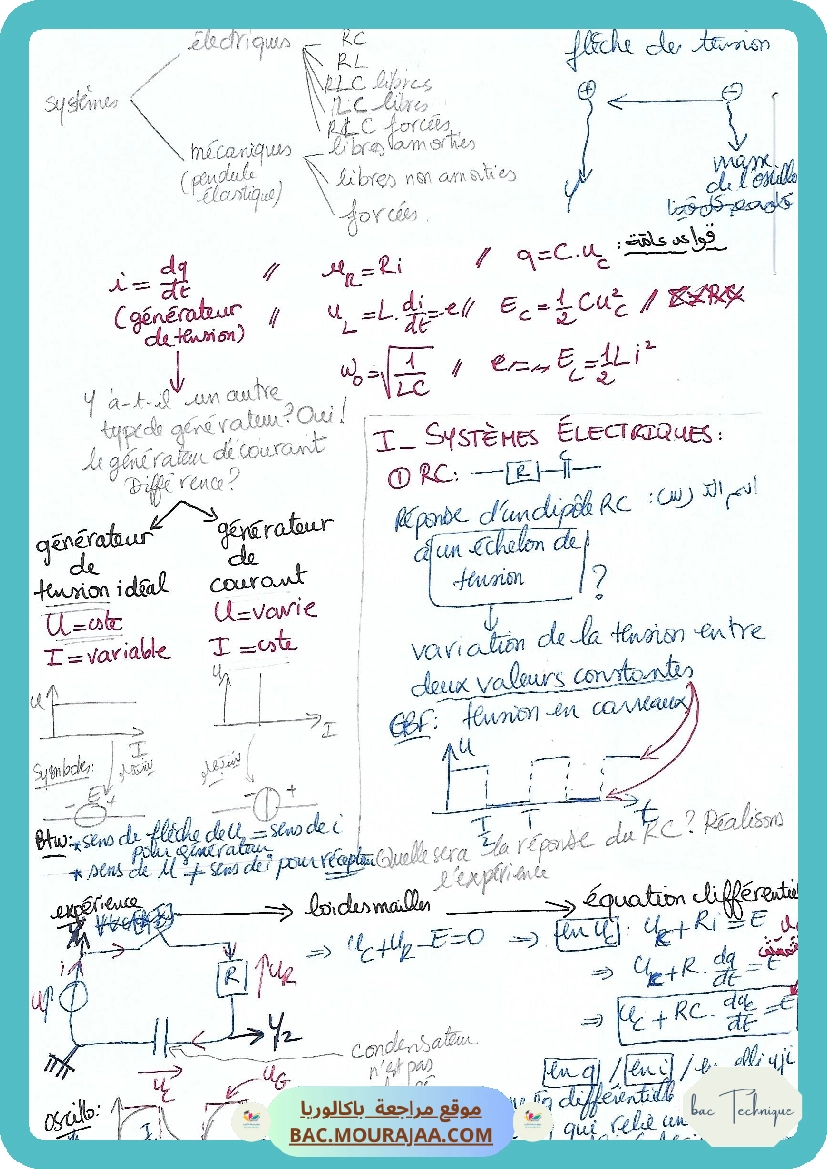 systèmes
électriques
RC
RL
RLC libres
LC libres
RLC forcées
mécaniques
(pendule
élastique)
libres amorties
libres non amorties
forcées.
flèche de tension
+ −
Y
masse
de l'oscillo
قواعد عامة:
i = dq/dt // u_R = Ri // q = C.u_c
(générateur
de tension) // u_L = L.di/dt = -e // E_c = 1/2 Cu_c² //
ω₀ = √(1/LC) // E_L = 1/2 Li²
Y a-t-il un autre
type de générateur? Oui!
le générateur de courant
Différence?
générateur
de
tension idéal
U = cste
I = variable
générateur
de
courant
U = varie
I = cste
U
I
U
I
Symboles:
E +
+
Btw: * sens de flèche de U = sens de i
pour générateur
* sens de U ≠ sens de i pour récepteur
I_ SYSTÈMES ÉLECTRIQUES:
① RC: R C
اسم الدرس: Réponse d'un dipôle RC
à un échelon de
tension ?
variation de la tension entre
deux valeurs constantes
GBF: tension en carreaux
U
T/2 T t
Quelle sera la réponse du RC? Réalisons
l'expérience
expérience → loi des mailles → équation différentielle
⇒ u_C + u_R − E = 0 ⇒ en u_C: u_C + Ri = E
⇒ u_C + R.dq/dt = E
⇒ u_C + RC.du_C/dt = E
i
R
u_R
Y2
u_C
condensateur
n'est pas
en q / en i /
différentielle
qui relie un
oscillo:
u_G
موقع مراجعة باكالوريا
BAC.MOURAJAA.COM
bac Technique